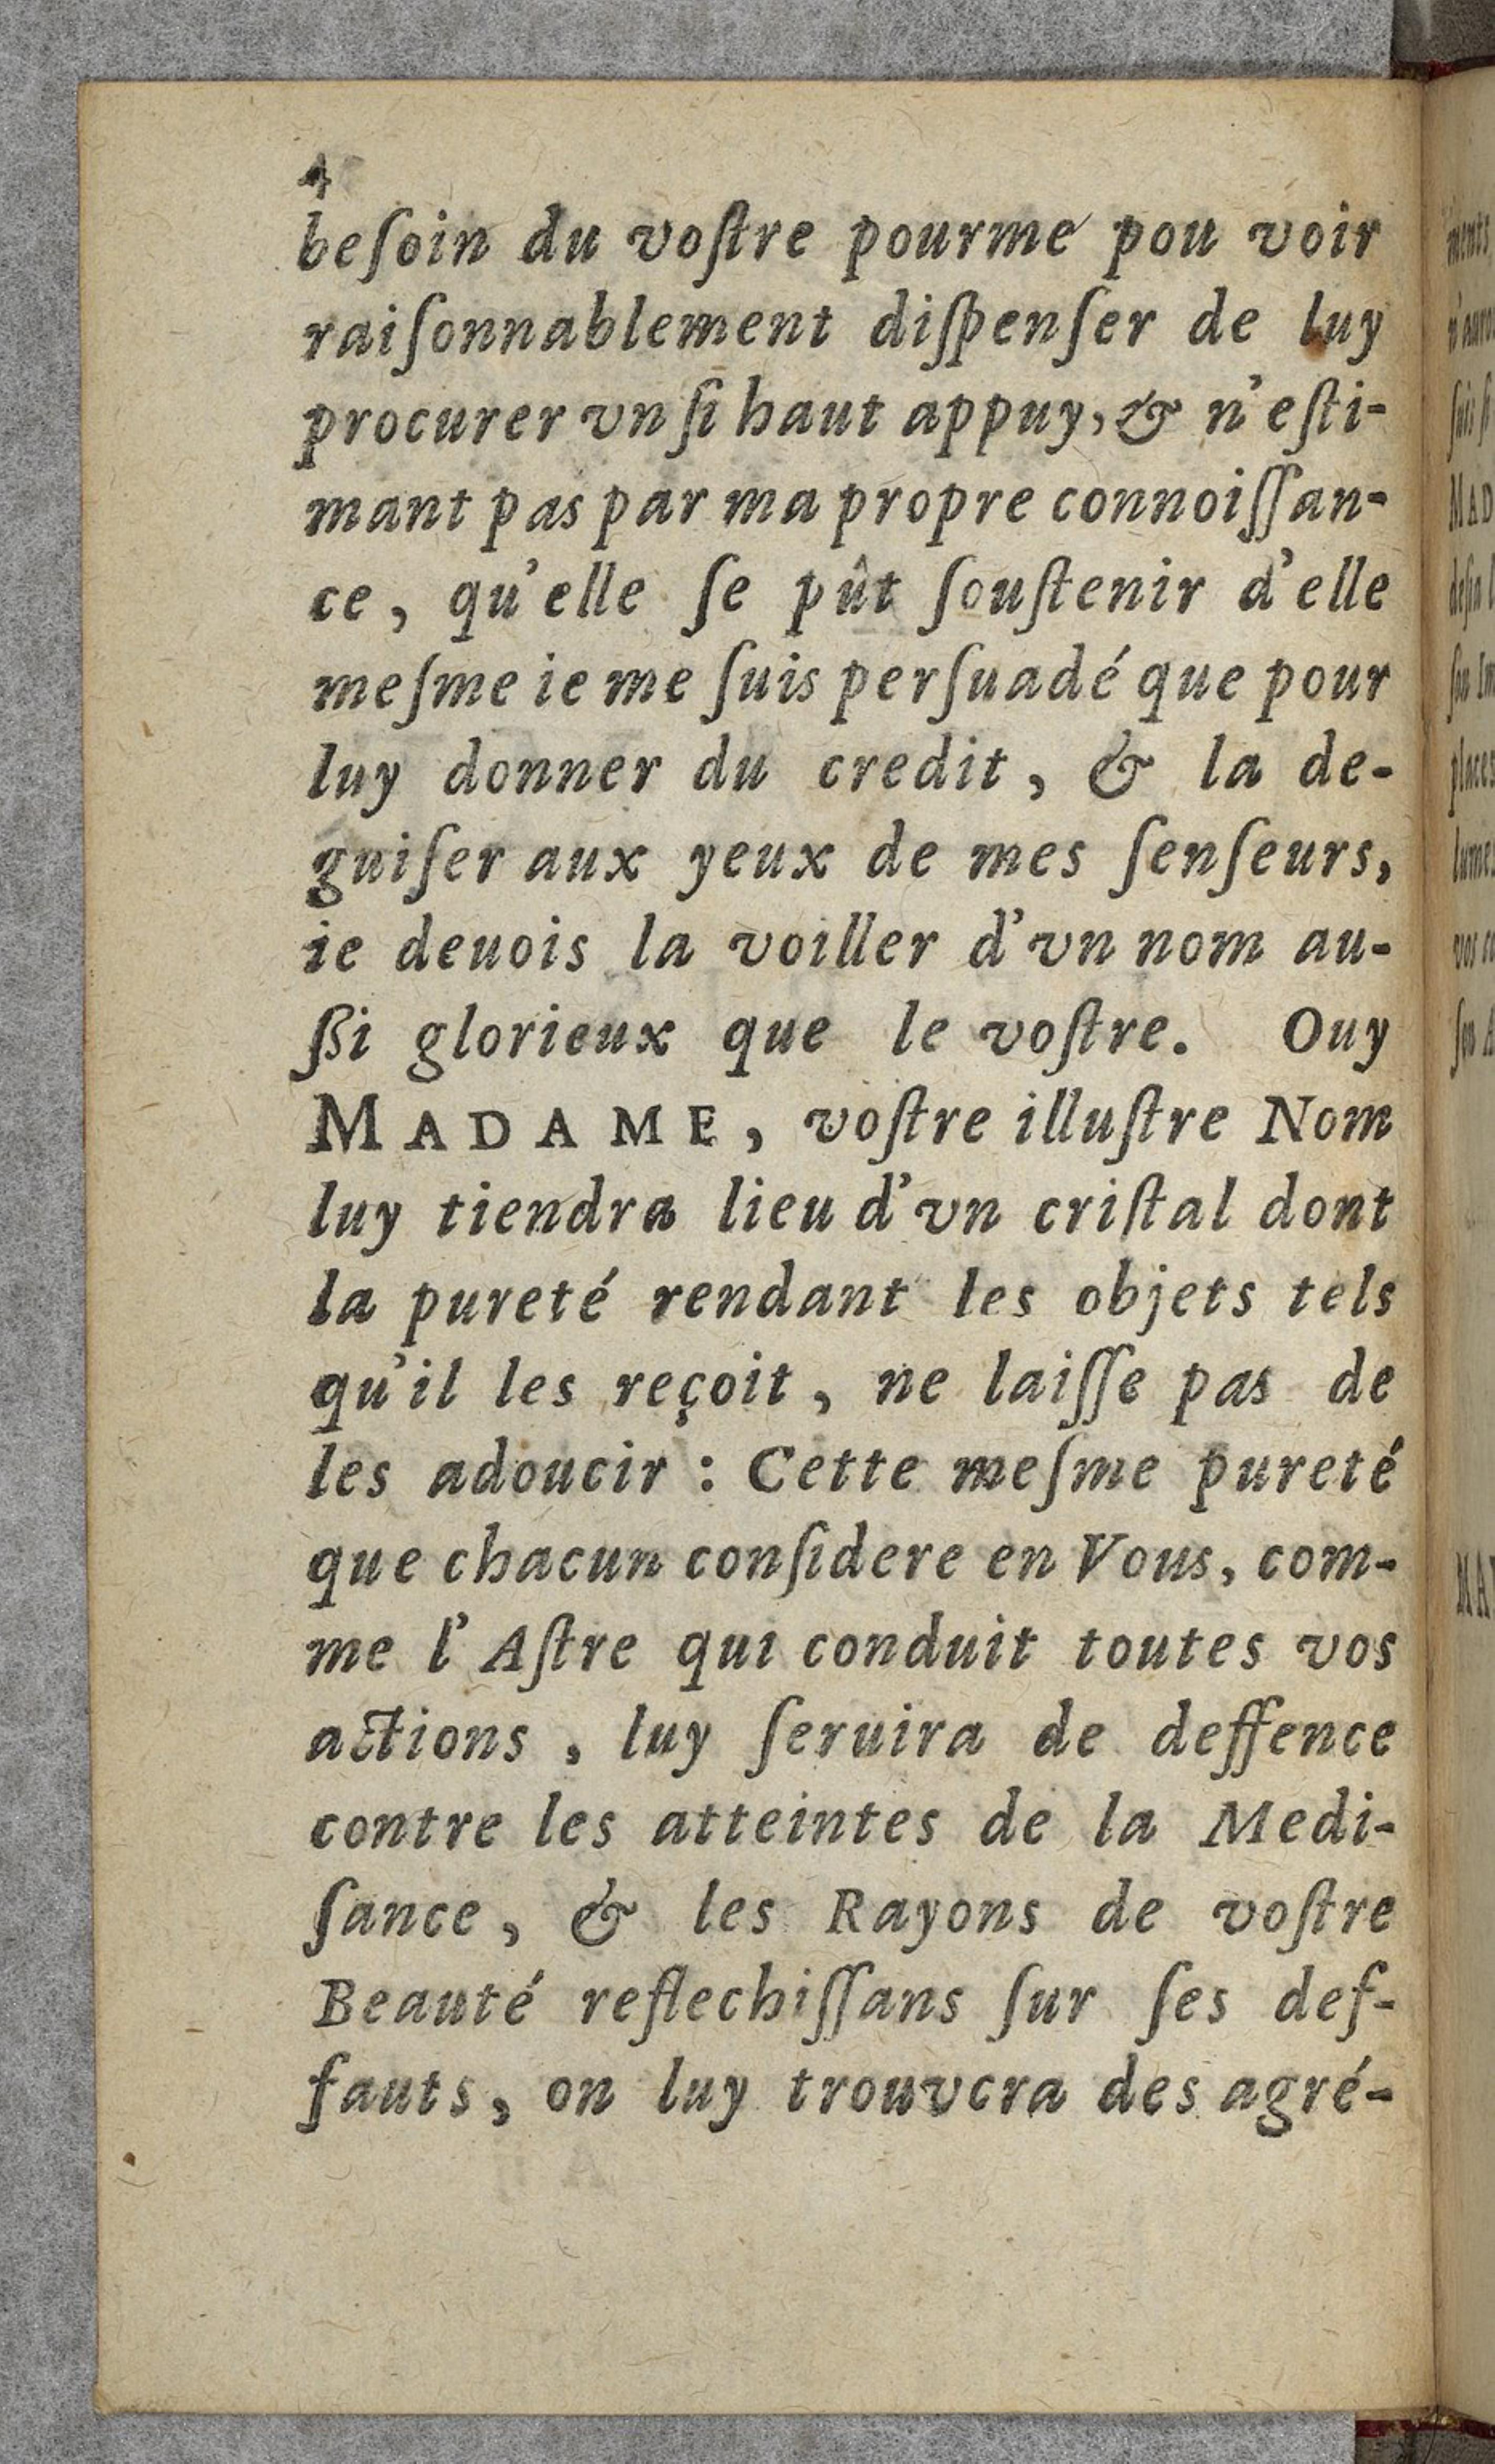 4
beſoin du voſtre pourme pou voir
raiſonnablement diſpenſer de luy
procurer vn ſi haut appuy, & n'eſti-
mant pas par ma propre connoiſſan-
ce, qu'elle ſe pût ſouſtenir d'elle
meſme ie me ſuis perſuadé que pour
luy donner du credit, & la de-
guiſer aux yeux de mes ſenſeurs,
ie deuois la voiller d'vn nom au-
ſſi glorieux que le voſtre. Ouy
MADAME, voſtre illuſtre Nom
luy tiendra lieu d'vn criſtal dont
la pureté rendant les objets tels
qu'il les reçoit, ne laiſſe pas de
les adoucir : Cette meſme pureté
que chacun conſidere en Vous, com-
me l'Aſtre qui conduit toutes vos
actions, luy ſeruira de deffence
contre les atteintes de la Medi-
ſance, & les Rayons de voſtre
Beauté reflechiſſans ſur ſes def-
fauts, on luy trouvera des agré-